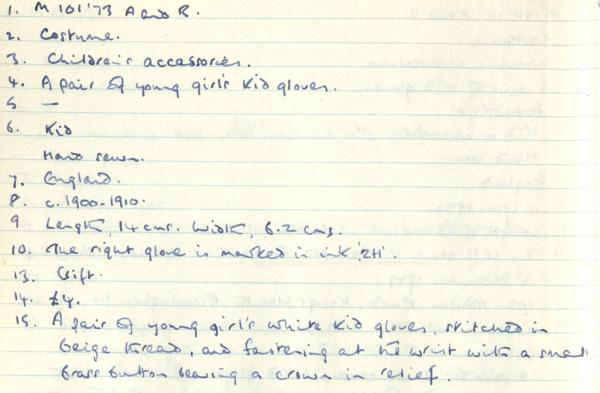 1. M 101'73 A and B.
2. Costume.
3. Children's accessories.
4. A pair of young girl's kid gloves.
5 —
6. Kid
Hand sewn.
7. England.
8. c. 1900-1910.
9 Length, 14 cms. Width, 6.2 cms.
10. The right glove is marked in ink '2H'.
13. Gift.
14. £4.
15. A pair of young girl's white kid gloves, stitched in
beige thread, and fastening at the wrist with a small
brass button bearing a crown in relief.